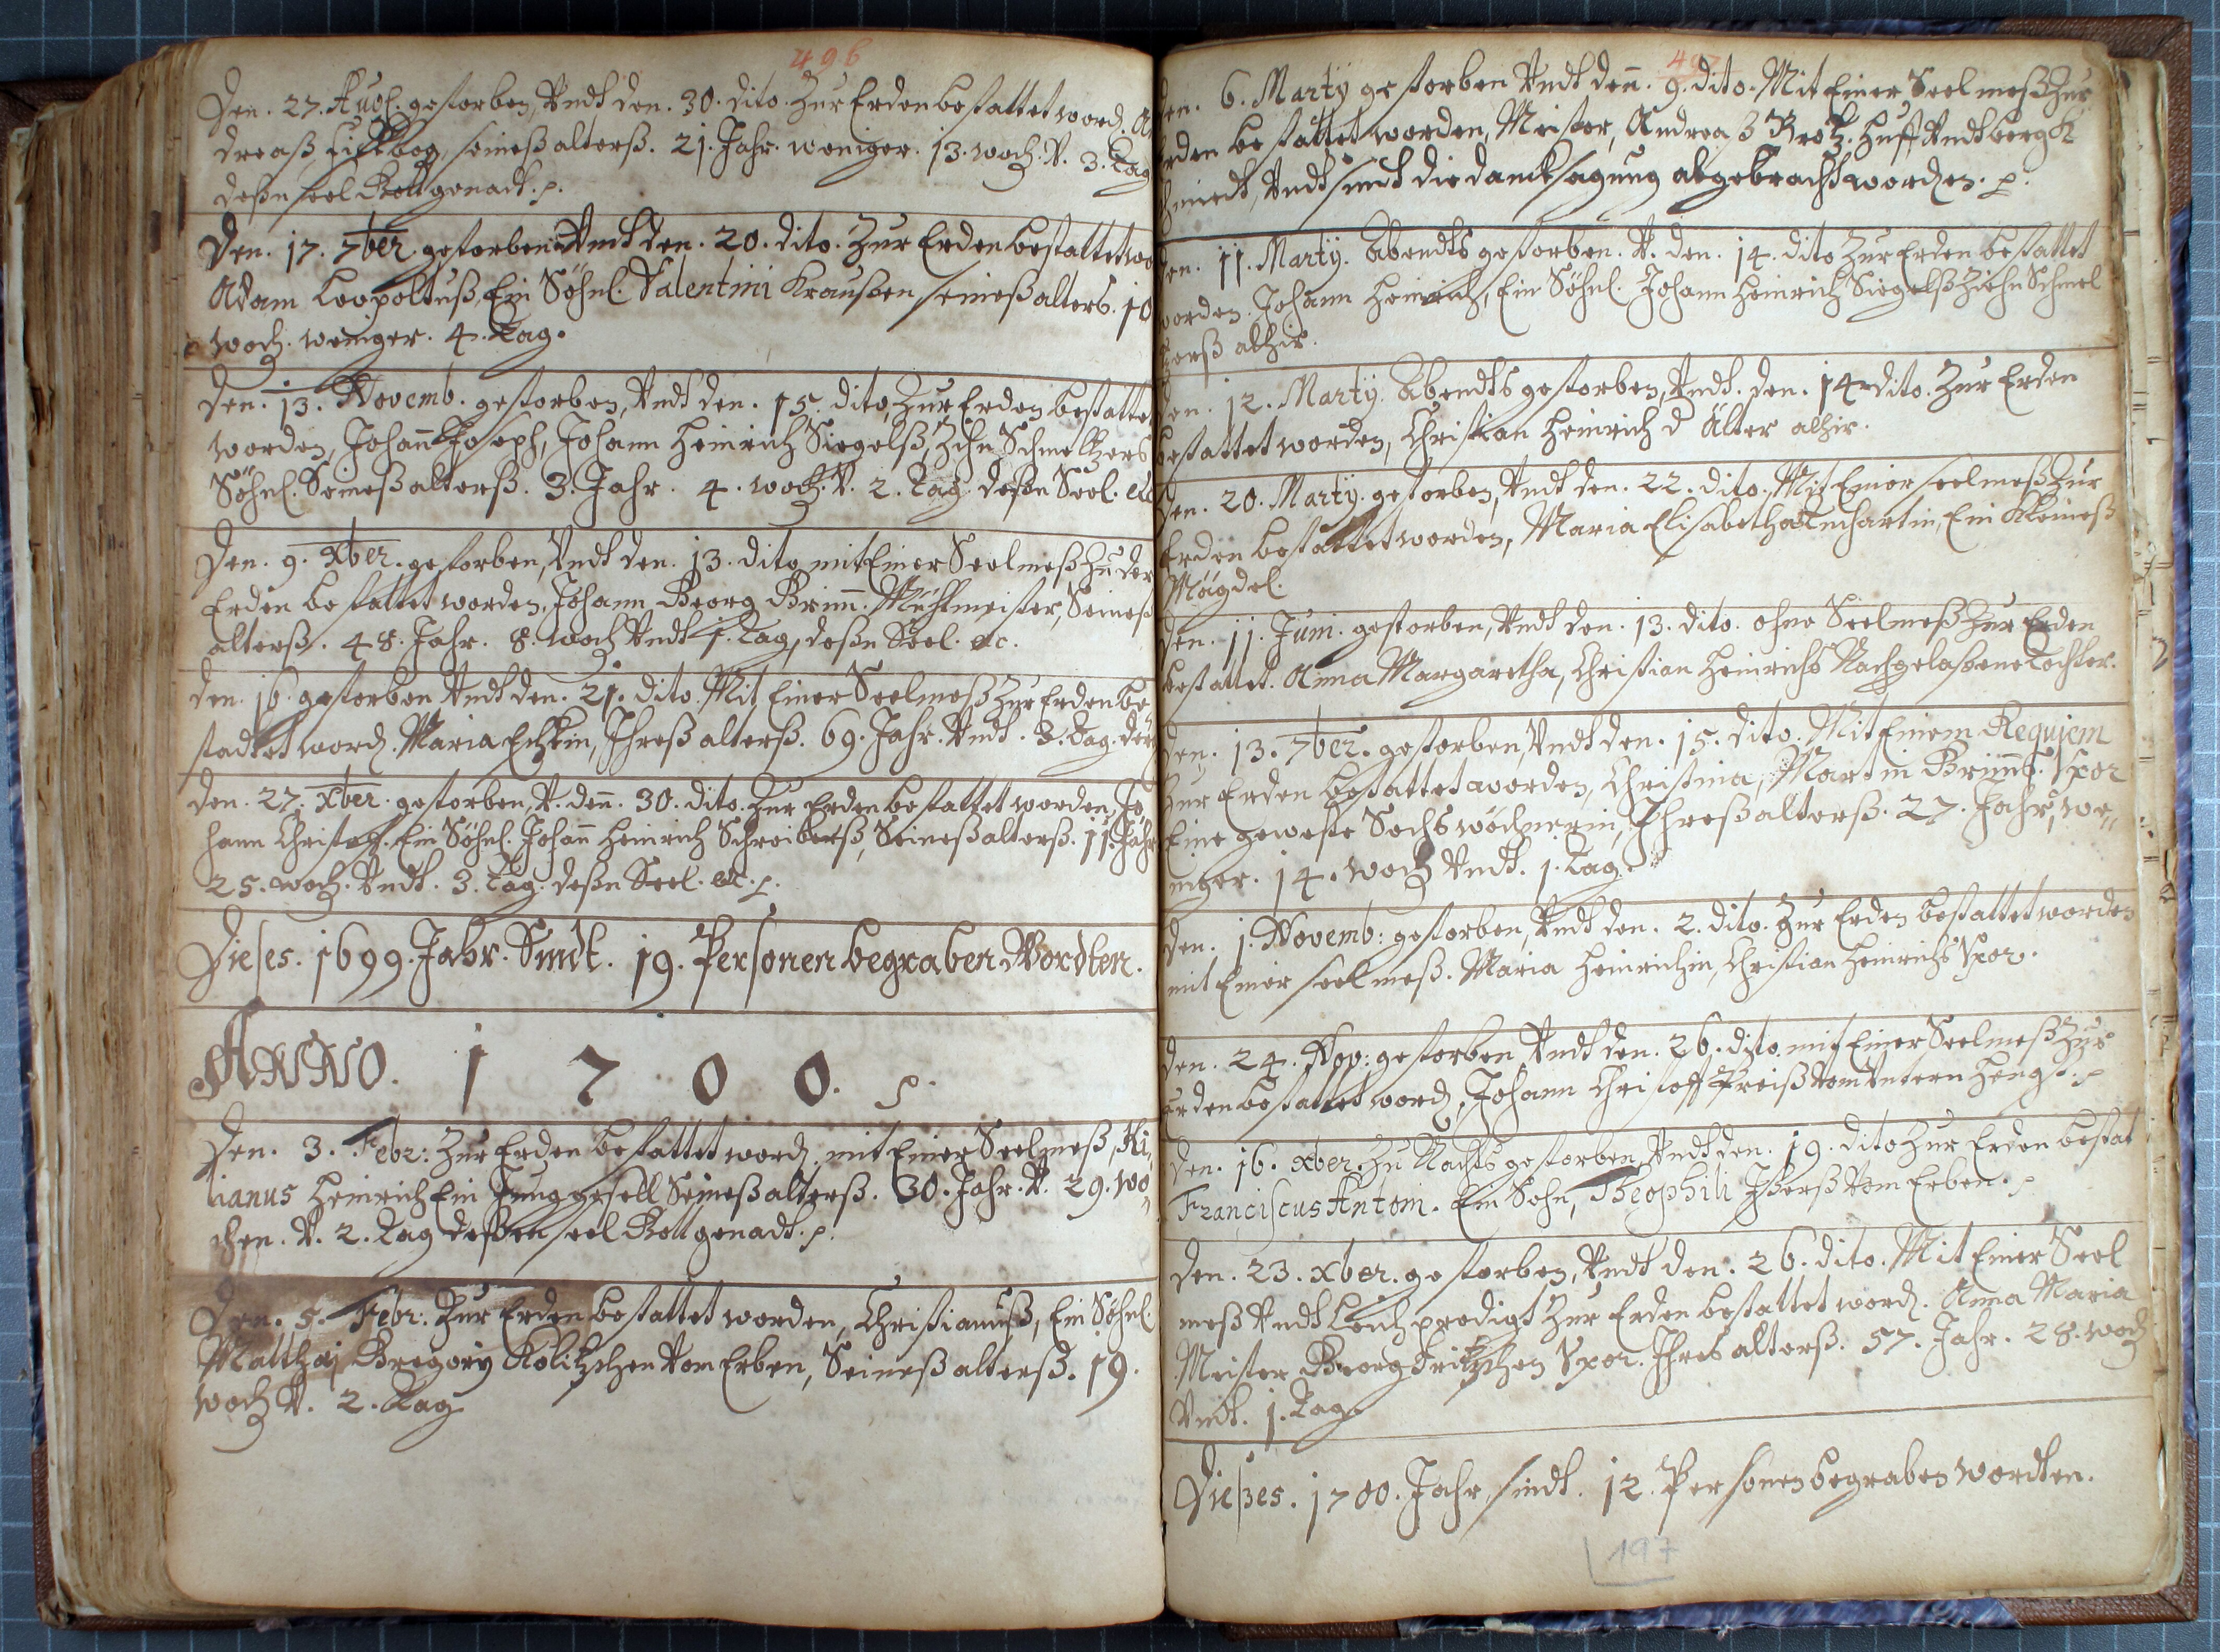 496
Den. 27. Augl. gestorben, Vndt den. 30. dito. Zur Erden bestattet word. A,
dreaß seineß alterß. 21. Jahr. weniger. 13. woch. V. 3. Tag
deßen seel Gott genadt. p.
Den. 17. 7ber. gestorben Vndt den. 20. dito. Zur Erden bestattet wo
Adam Leopoltuß, Ein Söhnl. Valentini Kraußen seineß alterß. 10
woch. weniger. 4. Tag.
Den. 13. Novemb. gestorben, Vndt den. 15. dito, Zur Erden bestattet
worden, Johann Joseph, Johann Heinrich Siegelß, Zihn Schmeltzers
Söhnl. Seineß alterß. 3. Jahr. 4. woch. V. 2. Tag. deßen Seel. etc
Den. 9. xber. gestorben, Vndt den. 13. dito mit Einer Seelmeß Zu der
Erden bestattet worden, Johann Georg Grimm. Mühlmeister, Seineß
alterß. 48. Jahr. 8. woch Vndt 1. Tag, deßen Seel. etc.
Den. 16. gestorben Vndt den. 21. dito. Mit Einer Seelmeß Zur Erden be
stadtet word. Maria Ihreß alterß. 69. Jahr. Vndt. 3. Tag. der
Den. 27. xber. gestorben, V. denn. 30. dito. Zur Erden bestattet worden, Jo
hann Christoff. Ein Söhnl. Johann Heinrich Schreiberß, Seineß alterß. 11. Jahr
25. woch. Vndt. 3. Tag. deßen Seel. etc. p.
Dieses. 1699. Jahr. Sindt. 19. Personen begraben Wordten.
ANNO. 1 7 0 0. p.
Den. 3. Febr: Zur Erden bestattet word, mit Einer Seelmeß, Ki,
lianus Heinrich Ein Jung gesell Seineß alterß. 30. Jahr. V. 29. wo
chen. V. 2. Tag deßen seel Gott genadt. p.
Den. 5. Febr: Zur Erden bestattet worden, Christianuß, Ein Söhnl.
Matthaj Gregory Kolitzschen Vom Erben, Seineß alterß. 19.
woch V. 2. Tag
497
den. 6. Martÿ gestorben Vndt denn. 9. dito. Mit Einer Seelmeß Zur
Erden bestattet worden, Meister, Andreaß Huff Vndt bergk
schmiedt, Vndt sindt die dancksagung abgebracht worden. p.
den. 11. Martÿ. Abendts gestorben. V. den. 14. dito Zur Erden bestattet
worden. Johann Heinrich, Ein Söhnl. Johann Heinrich Siegelß Ziehn Schmel
tzerß alhir.
den. 12. Martÿ. Abendts gestorben, Vndt. den. 14 dito. Zur Erden
bestattet worden, Christian Heinrich d Älter alhir.
Den. 20. Martÿ. gestorben, Vndt den. 22. dito. Mit Einer seelmeß Zur
Erden bestattet worden, Maria Elisabetha Ein Kleineß
Mägdel.
Den. 11. Juni. gestorben, Vndt den. 13. dito. ohne Seelmeß Zur Erden
bestattet. Anna Margaretha, Christian Heinrichs Nachgelaßene Tochter.
Den. 13. 7ber. gestorben, Vndt den. 15. dito. Mit Einem Requiem
Zur Erden bestattet worden, Christina, Martin Grimms. Vxor
Eine geweste Sechswöchnerin, Ihreß alterß. 27. Jahr, we,,
niger. 14. woch Vndt. 1. Tag.
Den. 1. Novemb: gestorben, Vndt den. 2. dito. Zur Erden bestattet worden
mit Einer seelmeß. Maria Heinrichin, Christian Heinrichs Vxor.
Den. 24. Nov: gestorben Vndt den. 26. dito. mit Einer Seelmeß Zur
Erden bestattet word, Johann Christoff Preiß Vom Vntern Hengst. p
Den. 16. xber. Zu Nachts gestorben, Vndt den. 19. dito Zur Erden bestat
Franciscus Antoni. Ein Sohn, Theophili Vom Erben. p
Den. 23. xber. gestorben, Vndt den. 26. dito. Mit Einer Seel
meß Vndt Leichpredigt Zur Erden bestattet word. Anna Maria
Meister Georg Fritzschen Vxor. Ihres alterß. 57. Jahr. 28. woch
Vndt. 1. Tag.
Dießes. 1700. Jahr, sindt. 12. Personen begraben wordten.
197